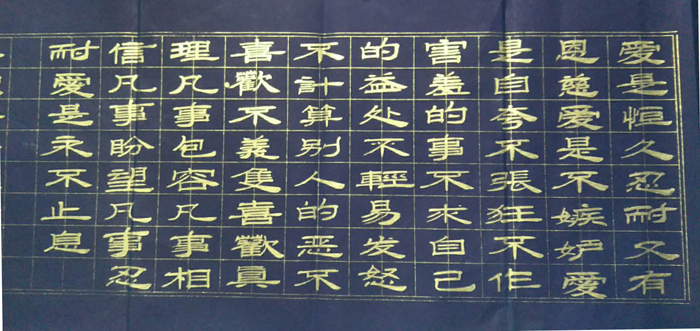 愛是恒久忍耐又有
恩慈愛是不嫉妒愛
是自夸不張狂不作
害羞的事不求自己
的益处不輕易发怒
不計算別人的恶不
喜歡不義隻喜歡真
理凡事包容凡事相
信凡事盼望凡事忍
耐愛是永不止息